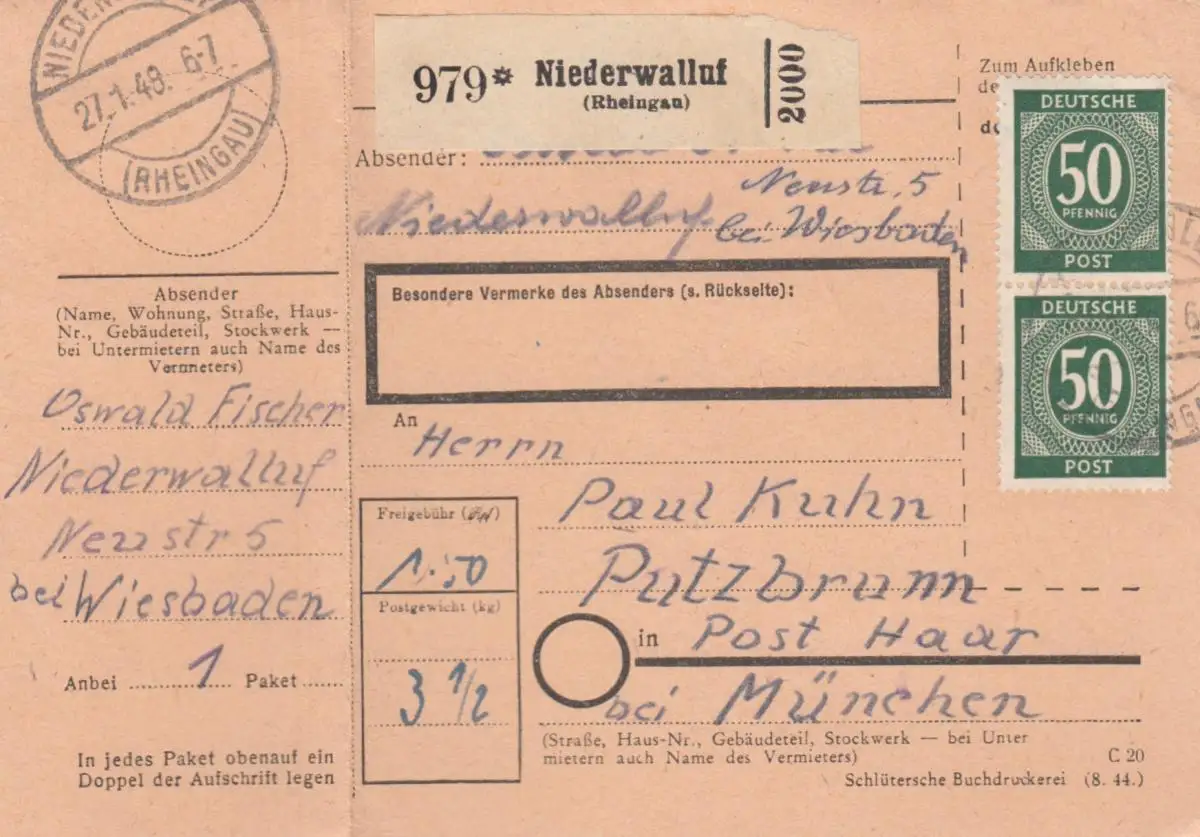 27.1.48. 6-7
(RHEINGAU)
979* Niederwalluf
(Rheingau)
2000
Absender:
Niederwalluf Neustr. 5
bei Wiesbaden
Zum Aufkleben
DEUTSCHE
50
PFENNIG
POST
DEUTSCHE
50
PFENNIG
POST
Absender
(Name, Wohnung, Straße, Haus-
Nr., Gebäudeteil, Stockwerk —
bei Untermietern auch Name des
Vermieters)
Oswald Fischer
Niederwalluf
Neustr 5
bei Wiesbaden
Anbei 1 Paket
In jedes Paket obenauf ein
Doppel der Aufschrift legen
Besondere Vermerke des Absenders (s. Rückseite):
An
Herrn
Paul Kuhn
Putzbrunn
in Post Haar
bei München
Freigebühr (RM)
1.50
Postgewicht (kg)
3 1/2
(Straße, Haus-Nr., Gebäudeteil, Stockwerk — bei Unter
mietern auch Name des Vermieters)
C 20
Schlütersche Buchdruckerei (8. 44.)